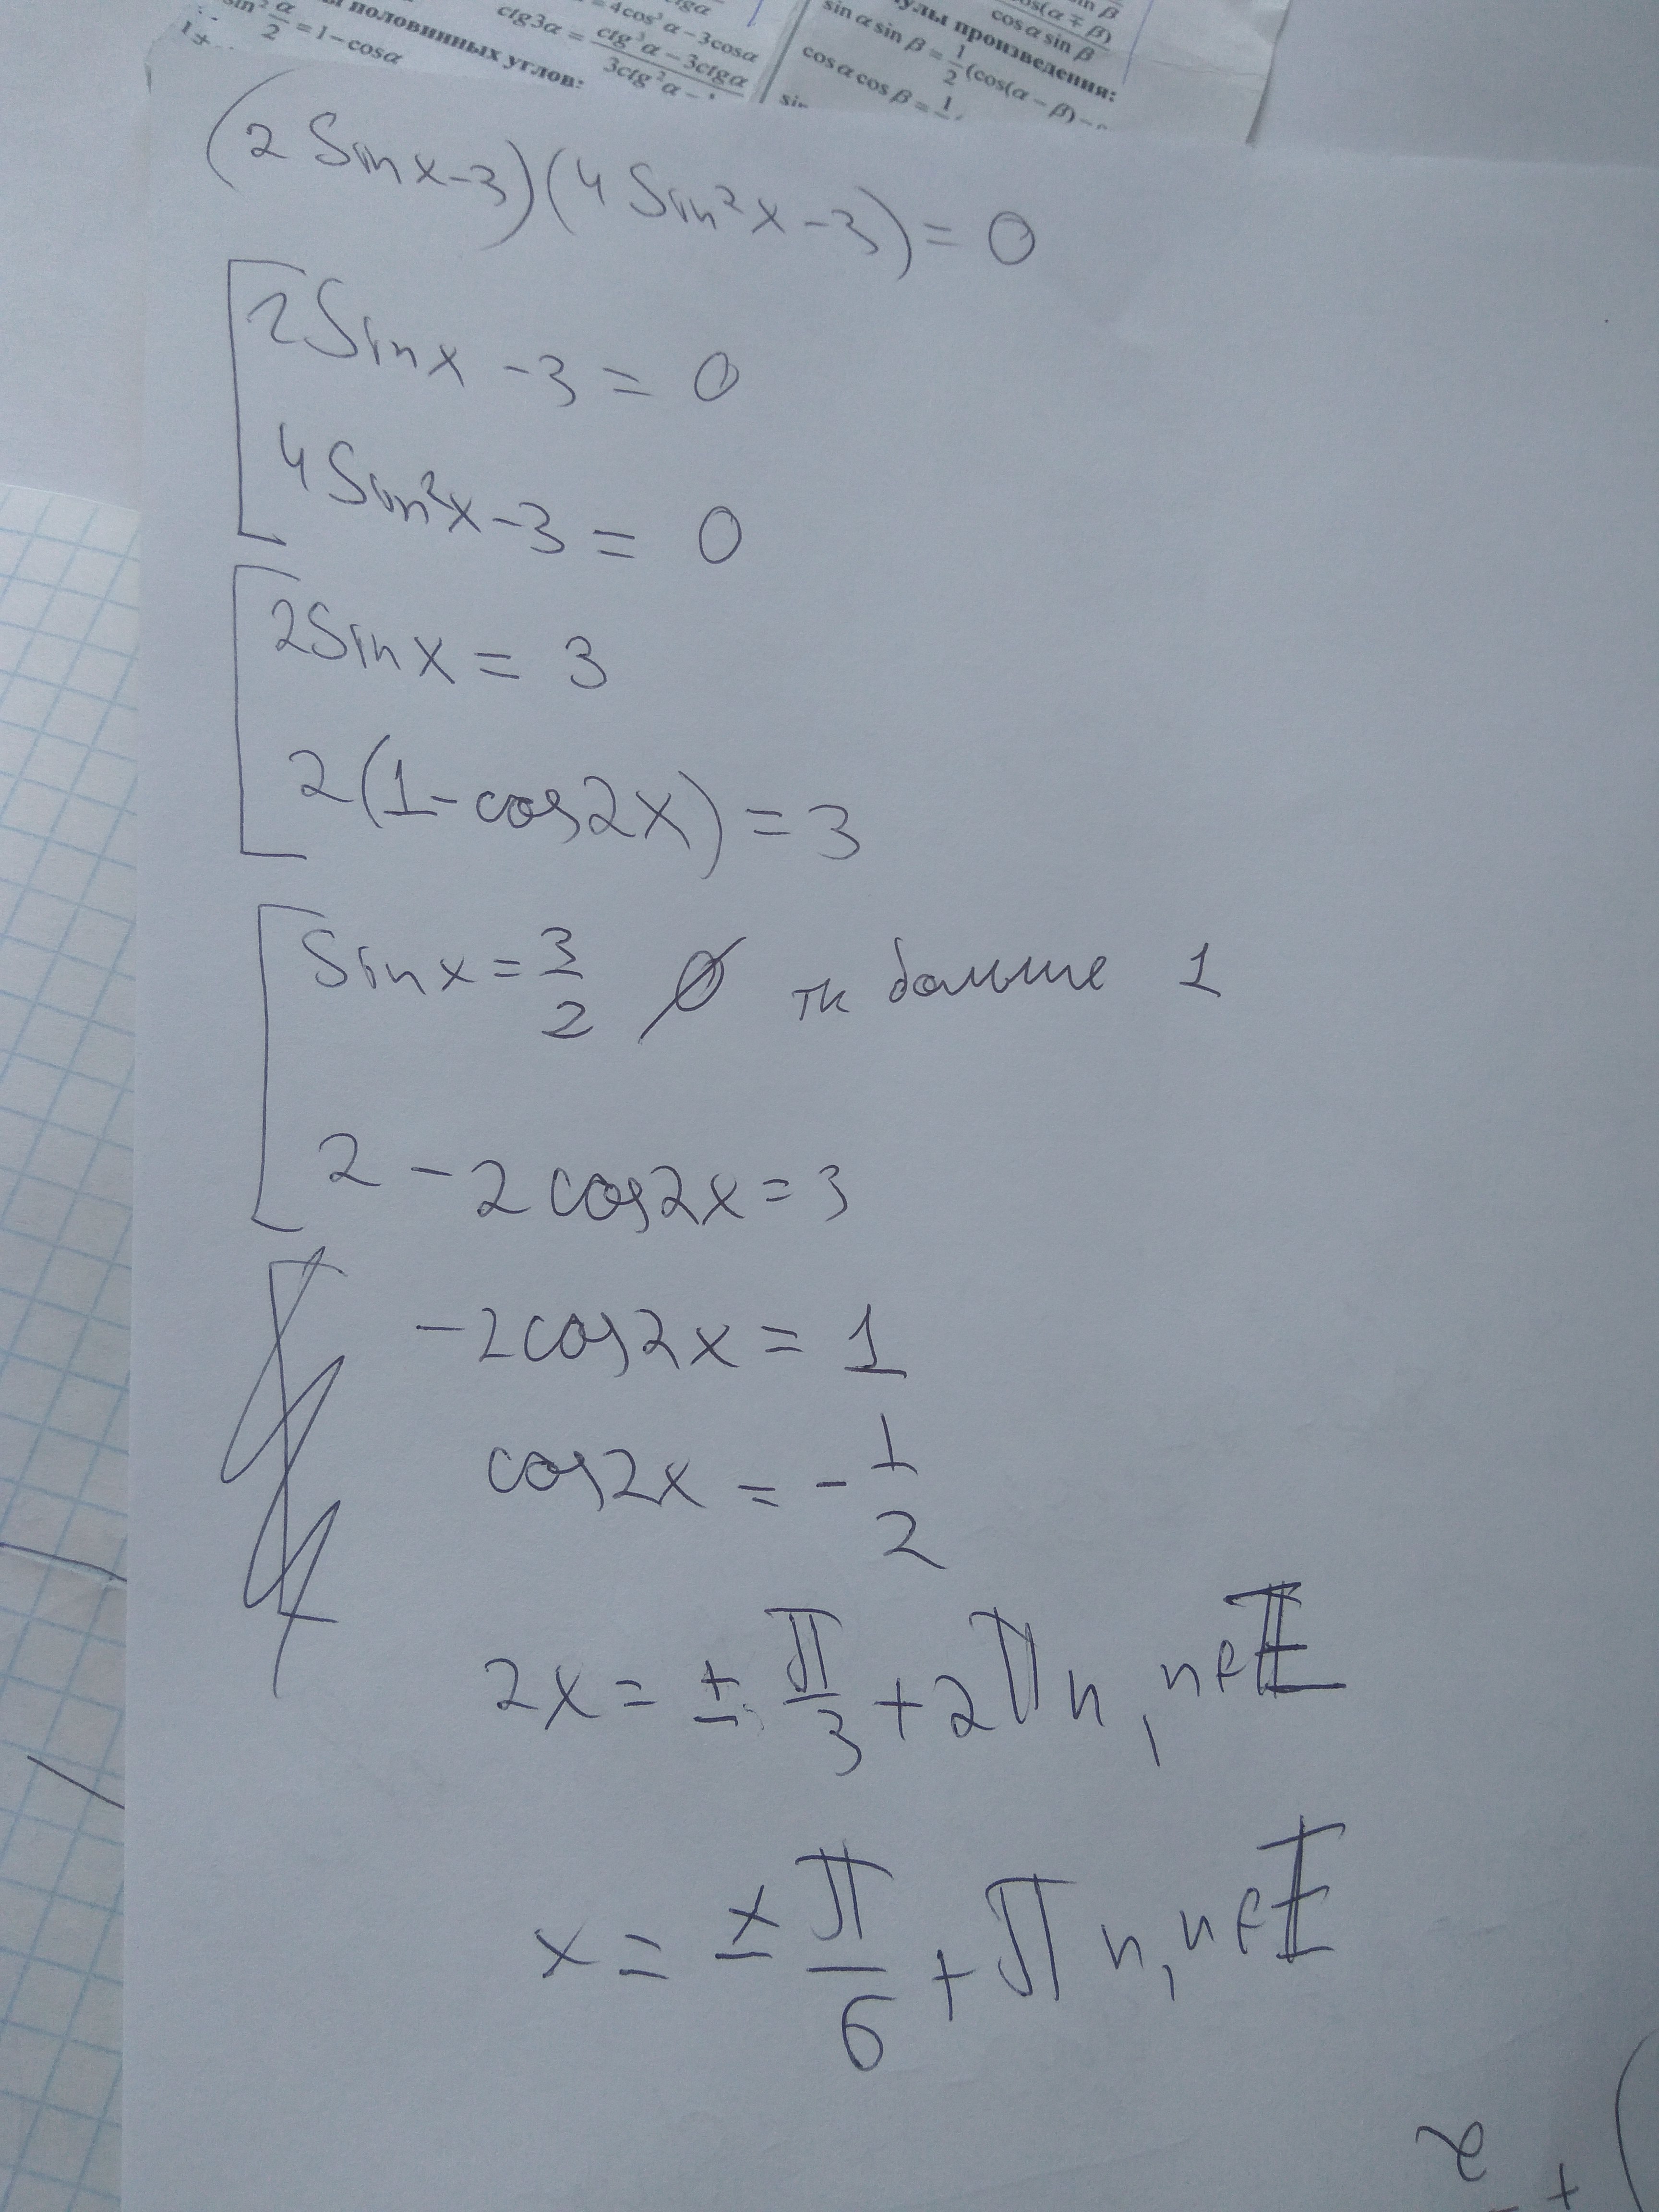 sin² α/2 = 1 - cos α
половинных углов:
= 4cos³ α - 3cos α
ctg3α = (ctg³ α - 3ctgα)/(3ctg² α -
sin α sin β = 1/2 (cos(α - β) -
произведения:
cos α cos β = 1
cos(α ∓ β)
cos α sin β
(2 Sin x - 3)(4 Sin² x - 3) = 0
2 Sin x - 3 = 0
4 Sin² x - 3 = 0
2 Sin x = 3
2(1 - cos 2x) = 3
Sin x = 3/2 ∅ тк больше 1
2 - 2 cos 2x = 3
-2 cos 2x = 1
cos 2x = - 1/2
2x = ± π/3 + 2πn, n ∈ Z
x = ± π/6 + πn, n ∈ Z